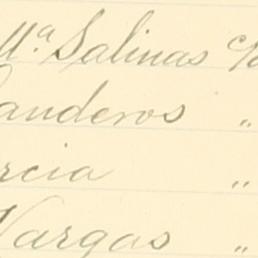 Mª Salinas c/
anderos "
rcia "
Vargas "